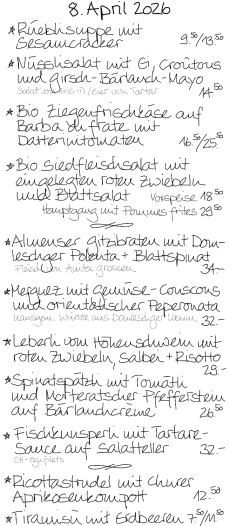 8. April 2026
* Rüeblisuppe mit
Sesamcracker 9.50/13.50
* Nüsslisalat mit Ei, Croûtons
und Hirsch-Bärlauch-Mayo
Salat von / Eier von Tartar 14.50
* Bio Ziegenfrischkäse auf
Barba di frate mit
Datterinitomaten 16.50/25.50
* Bio Siedfleischsalat mit
eingelegten roten Zwiebeln
und Blattsalat Vorspeise 18.50
Hauptgang mit Pommes frites 29.50
* Almenser Gitzibraten mit Dom-
leschger Polenta + Blattspinat
Fleisch von 34.-
* Merguez mit Gemüse-Couscous
und orientalischer Peperonata
hausgem. Würste aus Domleschger Lamm 32.-
* Leberli vom Höhenschwein mit
roten Zwiebeln, Salbei + Risotto
29.-
* Spinatspätzli mit Tomätli
und Morteratscher Pfefferstein
auf Bärlauchcrème 26.50
* Fischknusperli mit Tartare-
Sauce auf Salatteller 32.-
CH-Eglifilets
* Ricottastrudel mit Churer
Aprikosenkompott 12.50
* Tiramisù mit Erdbeeren 7.50/11.50